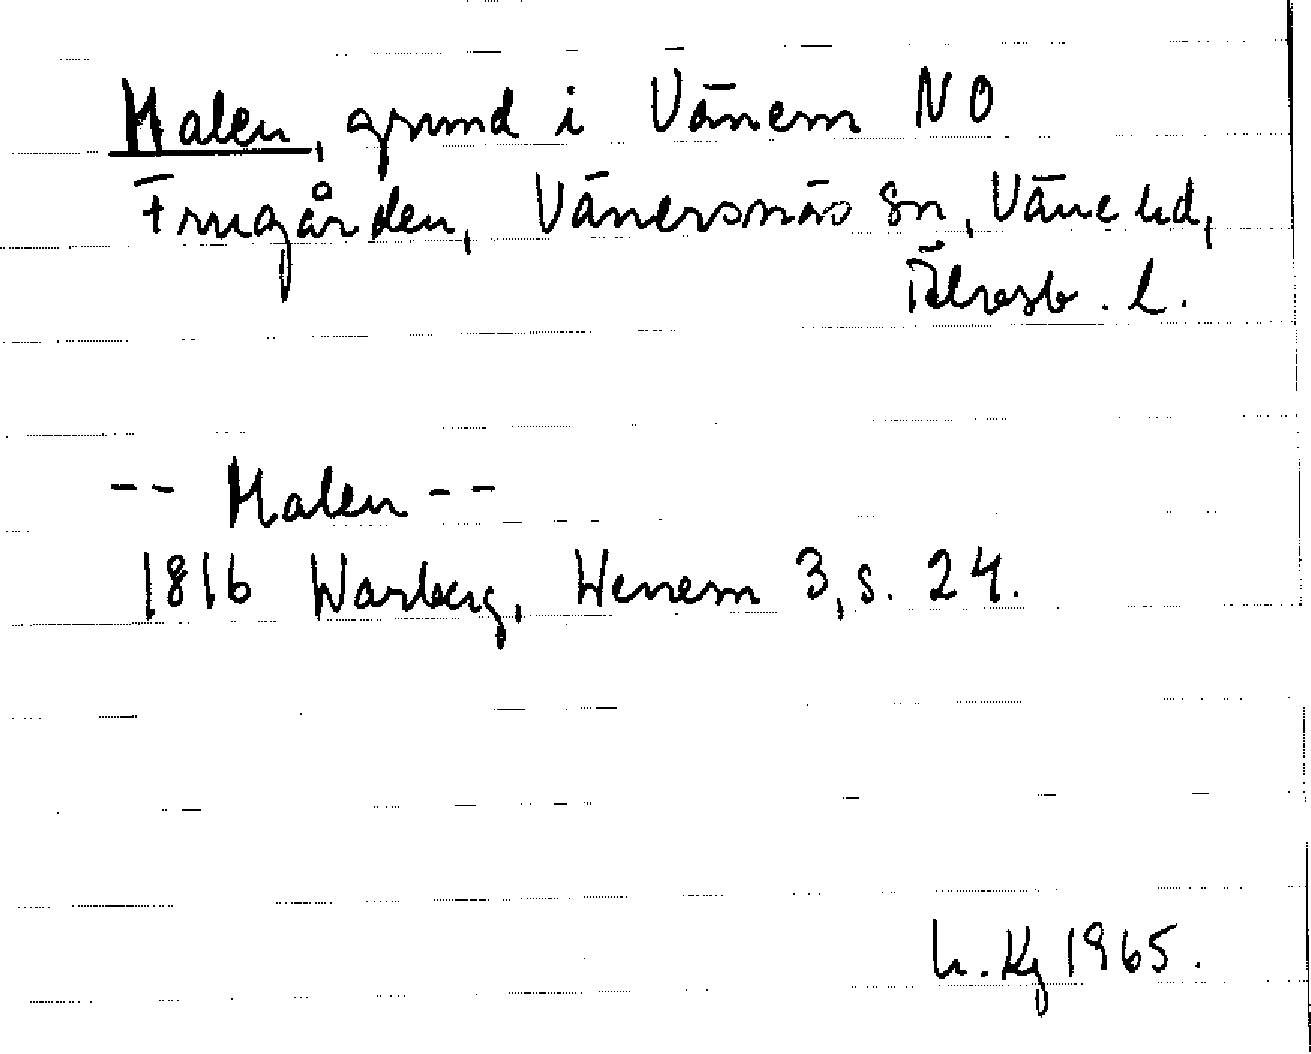 Malen, grund i Vänern NO
Frugården, Vänersnäs sn, Väne hd,
Älvsb. l.
-- Malen --
1816 Warberg, Wenern 3, s. 24.
Kg 1965.